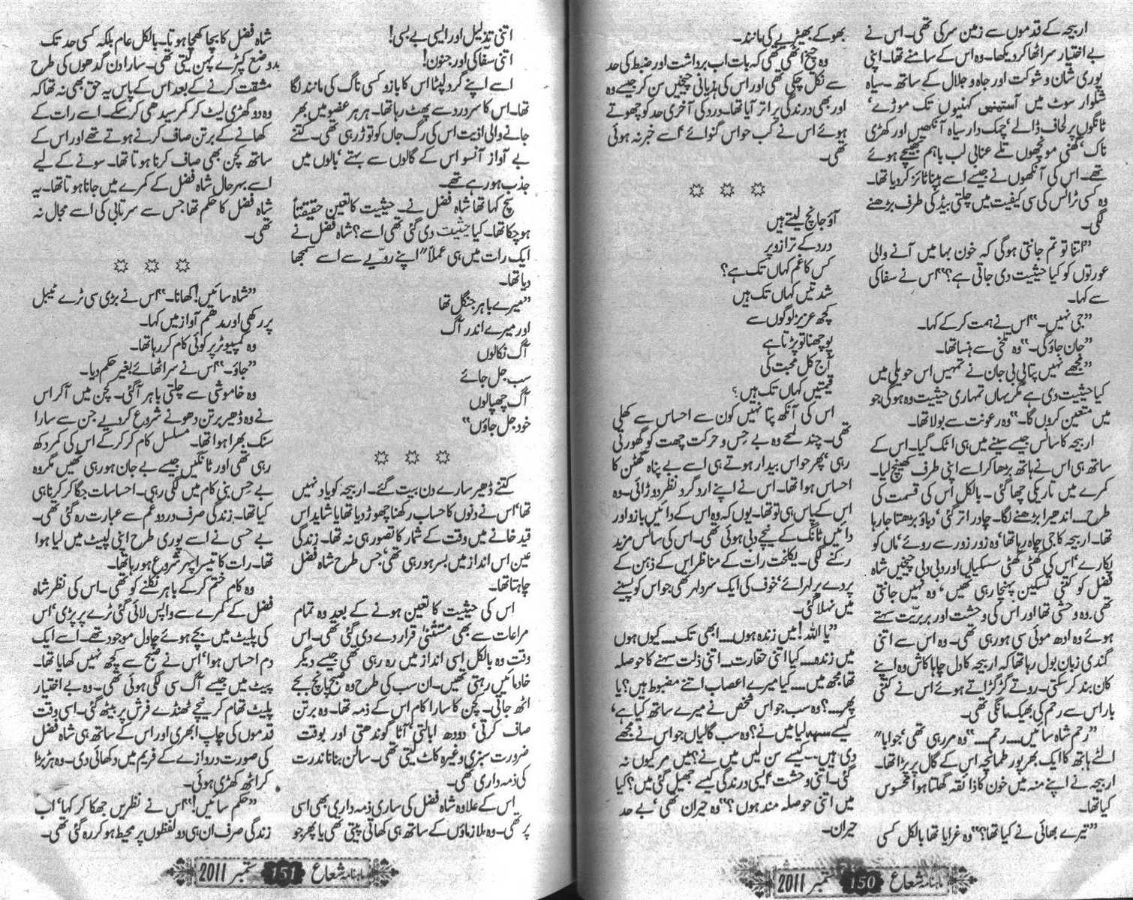 اریجہ کے قدموں سے زمین سرکی تھی۔ اس نے
بے اختیار سر اٹھا کر دیکھا۔ وہ اس کے سامنے تھا۔ اپنی
پوری شان و شوکت اور جاہ و جلال کے ساتھ۔ سیاہ
شلوار سوٹ میں آستینیں کہنیوں تک موڑے،
ٹانگوں پر لحاف ڈالے، چمک دار سیاہ آنکھیں اور کھڑی
ناک، گھنی مونچھوں تلے عنابی لب باہم بھینچے ہوئے
تھے۔ اس کی آنکھوں نے جیسے اسے ہپناٹائز کر دیا تھا۔
وہ کسی ٹرانس کی سی کیفیت میں چلتی بیڈ کی طرف بڑھنے
لگی۔
”اتنا تو تم جانتی ہو گی کہ خون بہا میں آنے والی
عورتوں کو کیا حیثیت دی جاتی ہے؟“ اس نے سفاکی
سے کہا۔
”جی نہیں۔“ اس نے ہمت کر کے کہا۔
”جان جاؤ گی۔“ وہ تلخی سے ہنسا تھا۔
”مجھے نہیں پتا بی بی جان نے تمہیں اس حویلی میں
کیا حیثیت دی ہے مگر یہاں تمہاری حیثیت وہ ہو گی جو
میں متعین کروں گا۔“ وہ رعونت سے بولا تھا۔
اریجہ کا سانس جیسے سینے میں ہی اٹک گیا۔ اس کے
ساتھ ہی اس نے ہاتھ بڑھا کر اسے اپنی طرف کھینچ لیا۔
کمرے میں تاریکی چھا گئی۔ بالکل اس کی قسمت کی
طرح۔ اندھیرا بڑھنے لگا۔ چادر اتر گئی، دباؤ بڑھتا جا رہا
تھا۔ اریجہ کا جی چاہ رہا تھا، وہ زور زور سے روئے، ماں کو
پکارے، اس کی گھٹی گھٹی سسکیاں اور دبی دبی چیخیں شاہ
فضل کو کتنی تسکین پہنچا رہی تھیں، وہ نہیں جانتی
تھی۔ وہ وحشی تھا اور اس کی وحشت اور بربریت سہتے
ہوئے وہ ادھ موئی سی ہو رہی تھی۔ وہ اس سے اتنی
گندی زبان بول رہا تھا کہ اریجہ کا دل چاہا کاش وہ اپنے
کان بند کر سکتی۔ روتے گڑگڑاتے ہوئے اس نے کتنی
بار اس سے رحم کی بھیک مانگی تھی۔
”رحم شاہ سائیں۔۔۔ رحم۔۔۔“ وہ مر رہی تھی ”جوابا“
الٹے ہاتھ کا ایک بھرپور طمانچہ اس کے گال پر پڑا تھا۔
اریجہ نے اپنے منہ میں خون کا ذائقہ گھلتا ہوا محسوس
کیا تھا۔
”تیرے بھائی نے کیا تھا؟“ وہ غرایا تھا بالکل کسی
بھوکے بھیڑیے کی مانند۔
وہ چیخ اٹھی تھی کہ بات اب برداشت اور ضبط کی حد
سے نکل چکی تھی اور اس کی ہذیانی چیخیں سن کر جیسے وہ
اور بھی درندگی پر اتر آیا تھا۔ درد کی آخری حد کو چھوتے
ہوئے اس نے کب حواس گنوائے، اسے خبر نہ ہوئی
تھی۔
آؤ جانچ لیتے ہیں
درد کے ترازو پر
کس کا غم کہاں تک ہے؟
شدتیں کہاں تک ہیں
کچھ عزیز لوگوں سے
پوچھنا تو پڑتا ہے
آج کل محبت کی
قیمتیں کہاں تک ہیں؟
اس کی آنکھ پتا نہیں کون سے احساس سے کھلی
تھی۔ چند لمحے وہ بے حس و حرکت چھت کو گھورتی
رہی، پھر حواس بیدار ہوتے ہی اسے بے پناہ گھٹن کا
احساس ہوا تھا۔ اس نے اپنے ارد گرد نظر دوڑائی۔ وہ
اس کے پاس ہی تو تھا۔ یوں کہ وہ اس کے دائیں بازو اور
دائیں ٹانگ کے نیچے دبی ہوئی تھی۔ اس کی سانس مزید
رکنے لگی۔ یکلخت رات کے مناظر اس کے ذہن کے
پردے پر لہرائے، خوف کی ایک سرد لہر تھی جو اس کو پسینے
میں نہلا گئی۔
”یا اللہ! میں زندہ ہوں۔۔۔ ابھی تک۔۔۔ کیوں ہوں
میں زندہ۔۔۔ کیا اتنی حقارت۔۔۔ اتنی ذلت سہنے کا حوصلہ
تھا مجھ میں۔۔۔ کیا میرے اعصاب اتنے مضبوط ہیں؟ یا
پھر۔۔۔؟ وہ سب جو اس شخص نے میرے ساتھ کیا ہے،
کیسے سہہ لیا میں نے؟ وہ سب گالیاں جو اس نے مجھے
دی ہیں۔۔۔ کیسے سن لیں میں نے؟ میں مر کیوں نہ
گئی۔ اتنی وحشت، ایسی درندگی کیسے جھیل گئی میں؟ کیا
میں اتنی حوصلہ مند ہوں؟“ وہ حیران تھی، بے حد
حیران۔
ماہنامہ شعاع 150 ستمبر 2011
اتنی تذلیل اور ایسی بے بسی!
اتنی سفاکی اور جنون!
اسے اپنے گرد لپٹا اس کا بازو کسی ناگ کی مانند لگا
تھا۔ اس کا سر درد سے پھٹ رہا تھا۔ ہر ہر عضو میں بھر
جانے والی اذیت اس کی رگ جاں کو توڑ رہی تھی۔ کتنے
بے آواز آنسو اس کے گالوں سے بہتے، بالوں میں
جذب ہو رہے تھے۔
سچ کہا تھا شاہ فضل نے۔ حیثیت کا تعین حقیقتاً
ہو چکا تھا۔ کیا حیثیت دی گئی تھی اسے؟ شاہ فضل نے
ایک رات میں ہی عملاً ”اپنے رویے سے اسے سمجھا
دیا تھا۔
”میرے باہر جنگل تھا
اور میرے اندر آگ
آگ نکالوں
سب جل جائے
آگ چھپالوں
خود جل جاؤں“
کتنے ڈھیر سارے دن بیت گئے۔ اریجہ کو یاد نہیں
تھا، اس نے دنوں کا حساب رکھنا چھوڑ دیا تھا یا شاید اس
قید خانے میں وقت کے شمار کا تصور ہی نہ تھا۔ زندگی
عین اس انداز میں بسر ہو رہی تھی، جس طرح شاہ فضل
چاہتا تھا۔
اس کی حیثیت کا تعین ہونے کے بعد وہ تمام
مراعات سے بھی مستثنیٰ قرار دے دی گئی تھی۔ اس
وقت وہ بالکل اسی انداز میں رہ رہی تھی جیسے دیگر
خادمائیں رہتی تھیں۔ ان سب کی طرح وہ صبح پانچ بجے
اٹھ جاتی۔ کچن کا سارا کام اس کے ذمہ تھا۔ وہ برتن
صاف کرتی، دودھ ابالتی، آٹا گوندھتی اور بوقت
ضرورت سبزی وغیرہ کاٹ لیتی تھی۔ سالن بنانا ندرت
کی ذمہ داری تھی۔
اس کے علاوہ شاہ فضل کی ساری ذمہ داری بھی اسی
پر تھی۔ وہ ملازماؤں کے ساتھ ہی کھاتی پیتی تھی یا پھر جو
شاہ فضل کا بچا کھچا ہوتا۔ بالکل عام بلکہ کسی حد تک
بدوضع کپڑے پہن لیتی تھی۔ سارا دن گدھوں کی طرح
مشقت کرنے کے بعد اس کے پاس یہ حق بھی نہ تھا کہ
وہ دو گھڑی لیٹ کر کمر سیدھی کر سکے۔ اسے رات کے
کھانے کے برتن صاف کرنے ہوتے تھے اور اس کے
ساتھ کچن بھی صاف کرنا ہوتا تھا۔ سونے کے لیے
اسے بہرحال شاہ فضل کے کمرے میں جانا ہوتا تھا۔ یہ
شاہ فضل کا حکم تھا جس سے سرتابی کی اسے مجال نہ
تھی۔
”شاہ سائیں! کھانا۔“ اس نے بڑی سی ٹرے ٹیبل
پر رکھی اور مدھم آواز میں کہا۔
وہ کمپیوٹر پر کوئی کام کر رہا تھا۔
”جاؤ۔“ اس نے سر اٹھائے بغیر حکم دیا۔
وہ خاموشی سے چلتی باہر آگئی۔ کچن میں آکر اس
نے وہ ڈھیر برتن دھونے شروع کر دیے جن سے سارا
سنک بھرا ہوا تھا۔ مسلسل کام کر کر کے اس کی کمر دکھ
رہی تھی اور ٹانگیں جیسے بے جان ہو رہی تھیں مگر وہ
بے حس بنی کام میں لگی رہی۔ احساسات جگا کر کرنا ہی
کیا تھا۔ زندگی صرف درد و غم سے عبارت رہ گئی تھی۔
بے حسی نے اسے پوری طرح اپنی لپیٹ میں لیا ہوا
تھا۔ رات کا تیسرا پہر شروع ہو رہا تھا۔
وہ کام ختم کر کے باہر نکلنے کو تھی۔ اس کی نظر شاہ
فضل کے کمرے سے واپس لائی گئی ٹرے پر پڑی، اس
کی پلیٹ میں بچے ہوئے چاول موجود تھے۔ اسے ایک
دم احساس ہوا، اس نے صبح سے کچھ نہیں کھایا تھا۔
پیٹ میں جیسے آگ سی لگی ہوئی تھی۔ وہ بے اختیار
پلیٹ تھام کر نیچے ٹھنڈے فرش پر بیٹھ گئی۔ اسی وقت
قدموں کی چاپ ابھری اور اس کے ساتھ ہی شاہ فضل
کی صورت دروازے کے فریم میں دکھائی دی۔ وہ ہڑبڑا
کر اٹھ کھڑی ہوئی۔
”حکم سائیں!“ اس نے نظریں جھکا کر کہا، اب
زندگی صرف ان ہی دو لفظوں پر محیط ہو کر رہ گئی تھی۔
ماہنامہ شعاع 151 ستمبر 2011